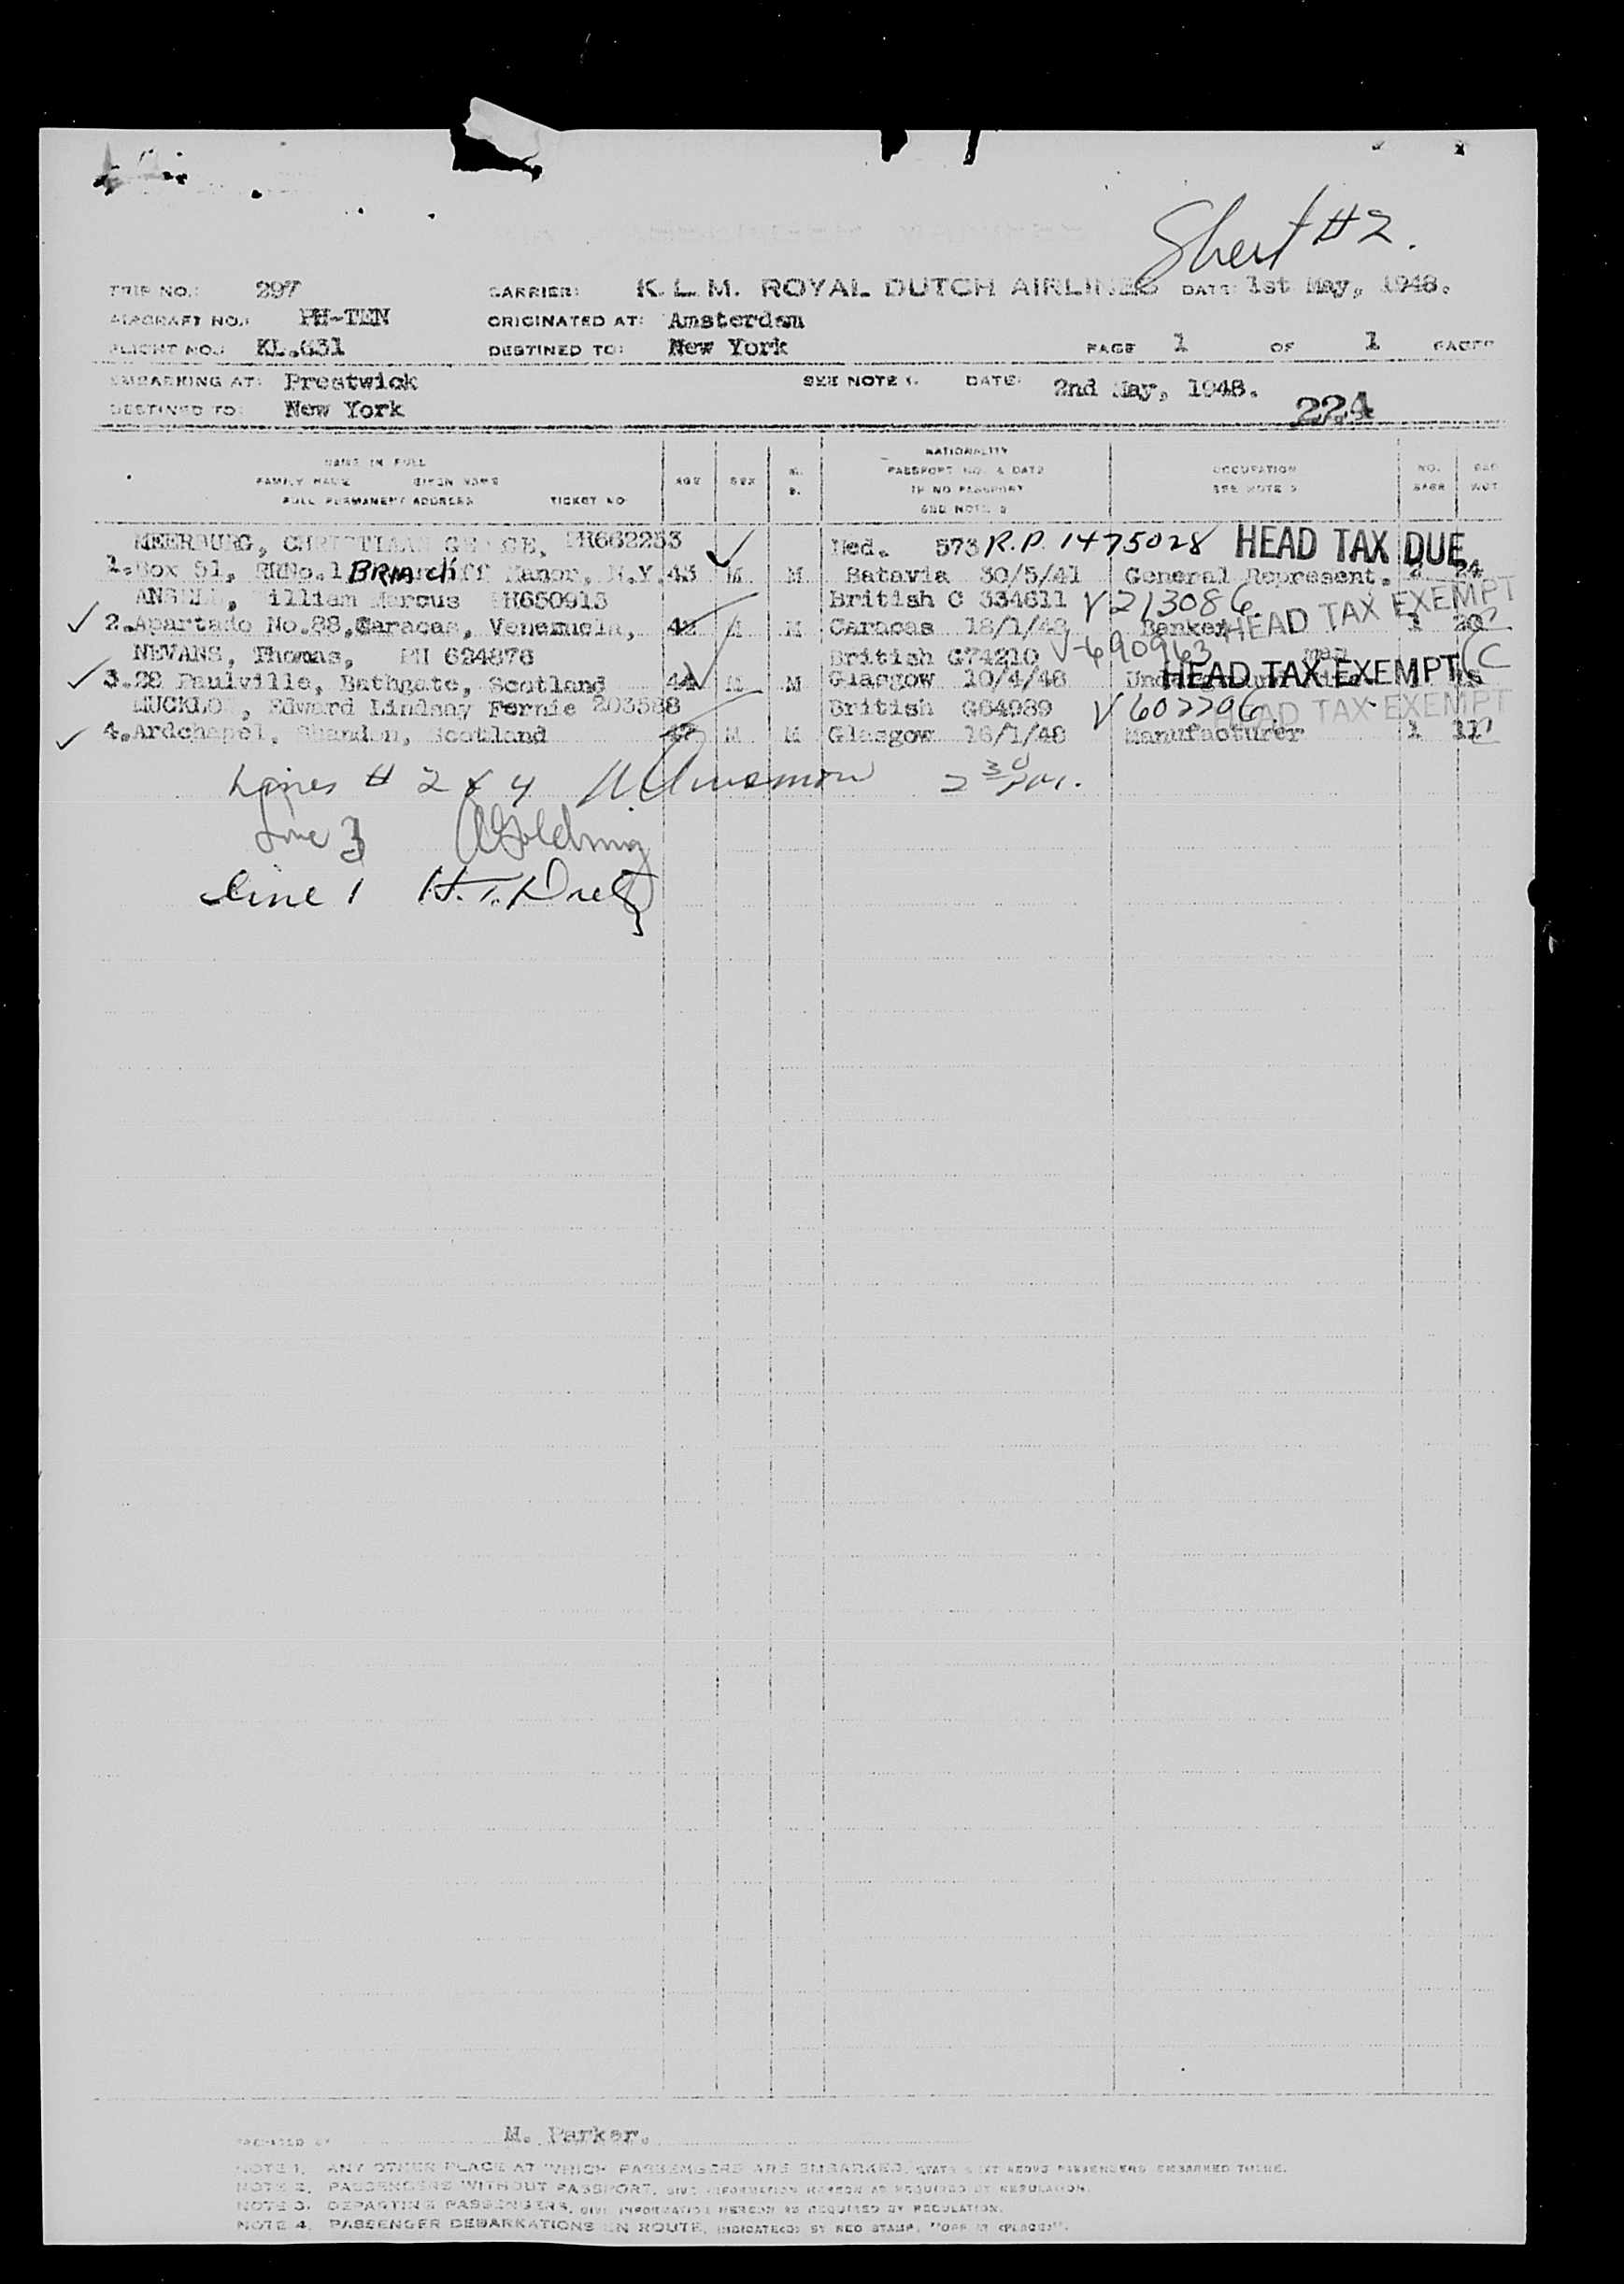 Sheet #2.
TRIP NO.: 297 CARRIER: K. L. M. ROYAL DUTCH AIRLINES DATE: 1st May, 1948.
AIRCRAFT NO.: PH-TEN ORIGINATED AT: Amsterdam
FLIGHT NO.: KL.631 DESTINED TO: New York PAGE 1 OF 1 PAGES
EMBARKING AT: Prestwick SEE NOTE 1. DATE: 2nd May, 1948.
DESTINED TO: New York 224
NAME IN FULL NATIONALITY
FAMILY NAME GIVEN NAME AGE SEX M. PASSPORT NO. & DATE OCCUPATION NO. BAG
FULL PERMANENT ADDRESS TICKET NO S. IF NO PASSPORT SEE NOTE 3 BAGS WGT
SEE NOTE 2
MEERBURG, CHRISTIAAN GEORGE, 662253 Ned. 573 R.P. 1475028 HEAD TAX DUE
1. Box 51, RRNo.1 BRIARcliff Manor, N.Y 43 M M Batavia 30/5/41 General Represent. 2 24
William Marcus 650913 British C 334611 V 213086 HEAD TAX EXEMPT
2. Apartado No.88, Caracas, Venezuela, M Caracas 18/1/43 Banker 1
NEVANS, Thomas, PH 624876 British G74210 V-690963 man
3. 28 Paulville, Bathgate, Scotland 44 M M Glasgow 10/4/48 HEAD TAX EXEMPT
Edward Lindsay Fernie 203588 British G64989 V 602206 HEAD TAX EXEMPT
4. Ardchapel, Shandon, Scotland 47 M M Glasgow 16/1/48 Manufacturer 1 11
Lines # 2 & 4 2 30 PM.
Line 3 A Golding
Line 1
PREPARED BY M. Parker.
NOTE 1. ANY OTHER PLACE AT WHICH PASSENGERS ARE EMBARKED, STATE NEXT ABOVE PASSENGERS EMBARKED THERE.
NOTE 2. PASSENGERS WITHOUT PASSPORT, GIVE INFORMATION HEREON AS REQUIRED BY REGULATION.
NOTE 3. DEPARTING PASSENGERS, GIVE INFORMATION HEREON AS REQUIRED BY REGULATION.
NOTE 4. PASSENGER DEBARKATIONS EN ROUTE, INDICATE(D) BY RED STAMP, "OFF AT (PLACE)".